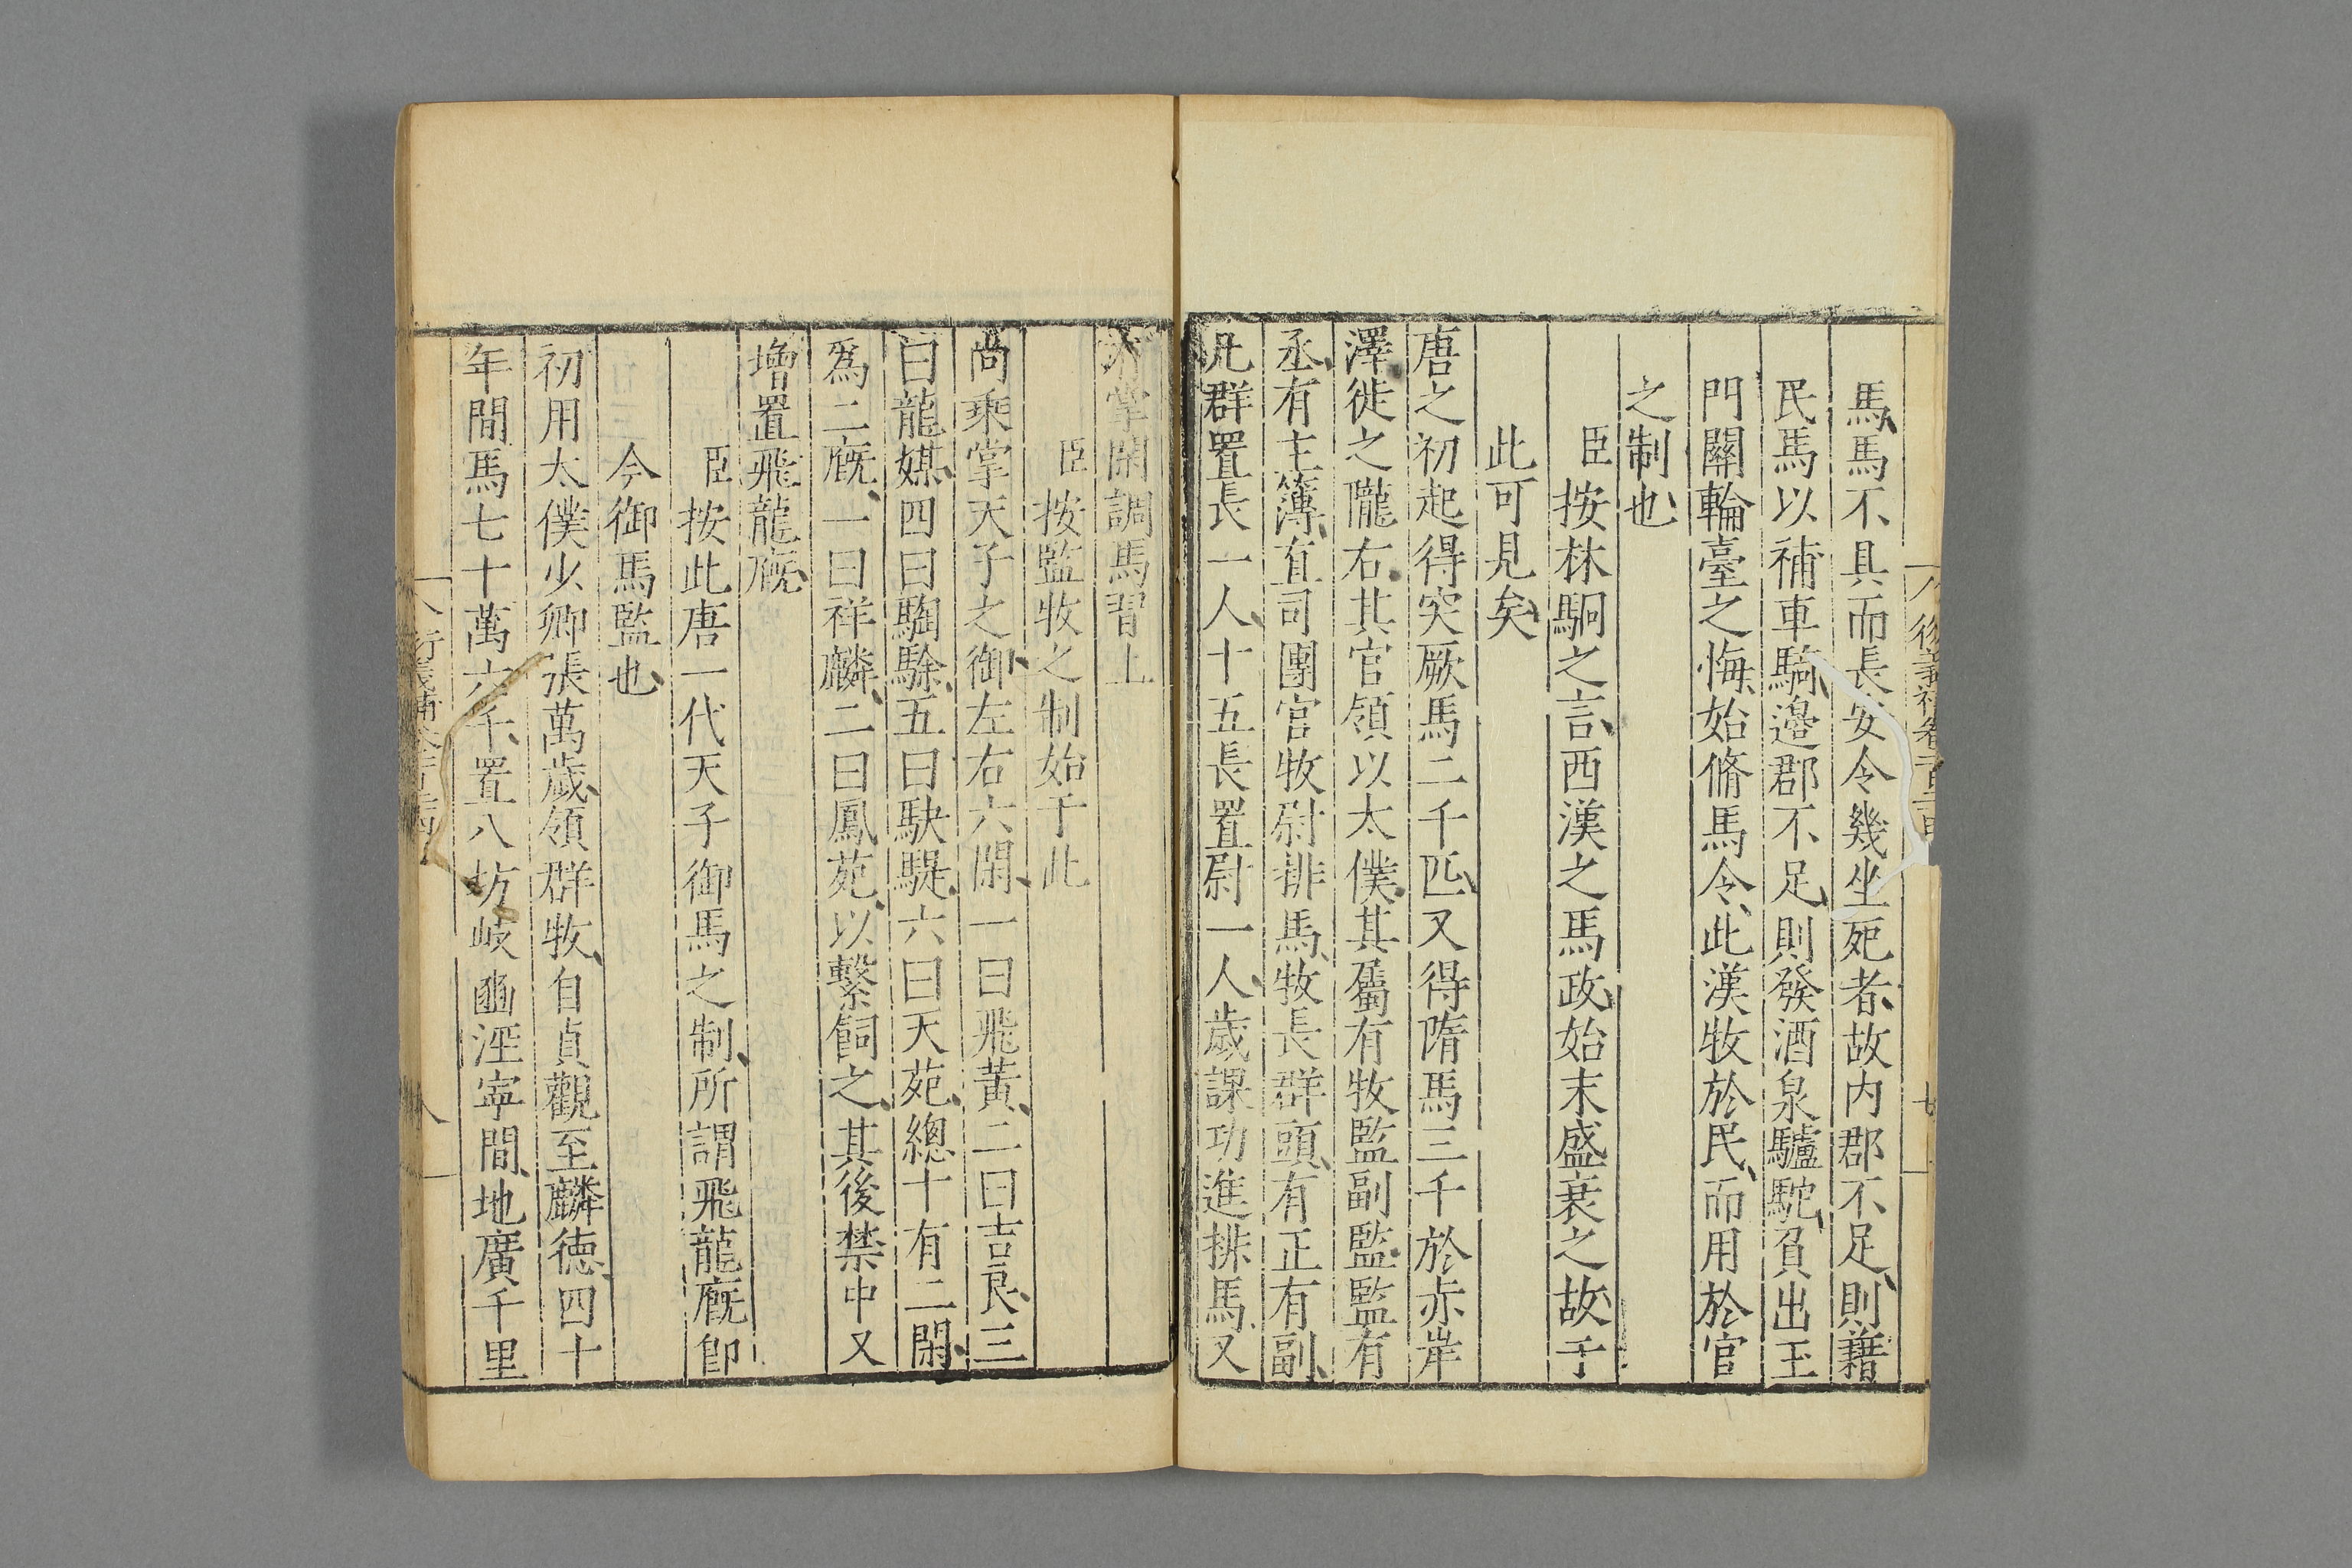 馬馬不具而長安令幾坐死者故内郡不足則藉
民馬以補車騎邊郡不足則發酒泉驢駝負出玉
門關輪臺之悔始脩馬令此漢牧於民而用於官
之制也
臣按林駉之言西漢之馬政始末盛衰之故于
此可見矣
唐之初起得突厥馬二千匹又得隋馬三千於赤岸
澤徙之隴右其官領以太僕其屬有牧監副監監有
丞有主簿直司團官牧尉排馬牧長群頭有正有副
凡群置長一人十五長置尉一人歲課功進排馬又
掌閑調馬習上
臣按監牧之制始于此
尚乘掌天子之御左右六閑一曰飛黃二曰吉良三
曰龍媒四曰騊駼五曰駃騠六曰天苑總十有二閑
爲二廐一曰祥麟二曰鳳苑以繫飼之其後禁中又
增置飛龍廐
臣按此唐一代天子御馬之制所謂飛龍廐卽
今御馬監也
初用太僕少卿張萬歲領群牧自貞觀至麟德四十
年間馬七十萬六千置八坊岐豳涇寧間地廣千里
八